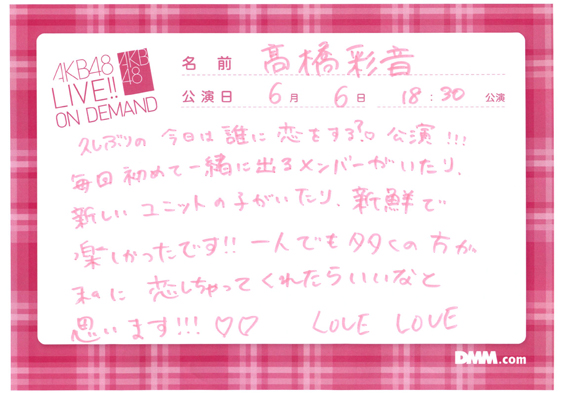 AKB48
LIVE!!
ON DEMAND
AKB
48
名前 髙橋彩音
公演日 6月 6日 18:30 公演
久しぶりの 今日は 誰に 恋をする?♡ 公演!!!
毎回初めて一緒に出るメンバーがいたり、
新しい ユニットの子がいたり、新鮮で
楽しかったです!! 一人でも多くの方が
私に 恋しちゃってくれたらいいなと
思います!!! ♡♡ LOVE LOVE
DMM.com